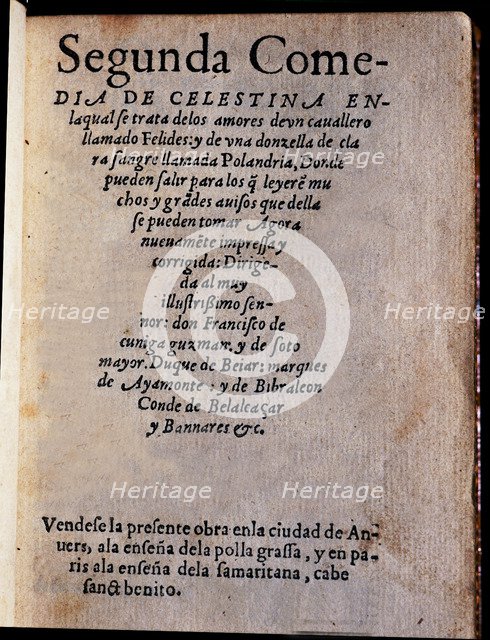 Segunda Come-
DIA DE CELESTINA EN-
laqual se trata delos amores deun cauallero
llamado Felides: y de vna donzella de cla
ra sangre llamada Polandria, Donde
pueden salir para los q̃ leyerẽ mu
chos y grãdes auisos que della
se pueden tomar Agora
nueuamẽte impressa y
corrigida: Dirige-
da al muy
illustrissimo sen-
nor: don Francisco de
cuniga guzman. y de soto
mayor. Duque de Beiar: marques
de Ayamonte: y de Bibraleon
Conde de Belalcaçar
y Bannares &c.
Vendese la presente obra enla ciudad de An-
uers, ala enseña dela polla grassa, y en pa-
ris ala enseña dela samaritana, cabe
sanct benito.
Heritage
Heritage
Heritage
Heritage
Heritage
Heritage
©